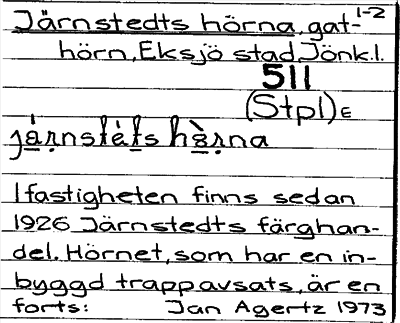 Järnstedts hörna, gat- 1-2
hörn, Eksjö stad, Jönk.l.
511
(Stpl) E
I fastigheten finns sedan
1926 Järnstedts färghan-
del. Hörnet, som har en in-
byggd trappavsats, är en
forts: Jan Agertz 1973